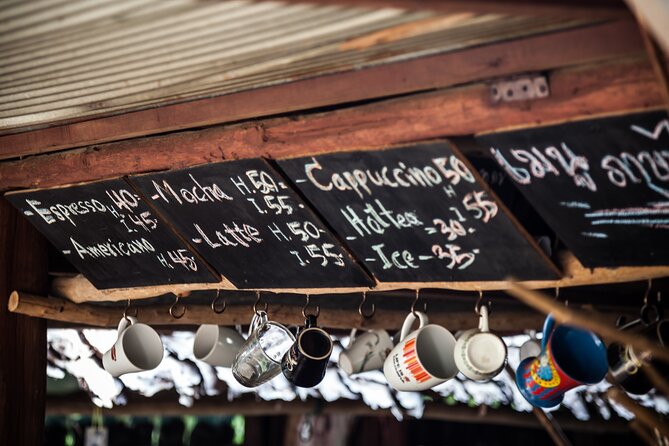 - Espresso H.40.-
I.45
- Americano
H.45.-
- Mocha H.50.-
I.55.-
- Latte H.50.-
I.55.-
- Cappuccino H.50.-
I.55.-
- Hot tea 30.-
- Ice - 35.-
เมนู